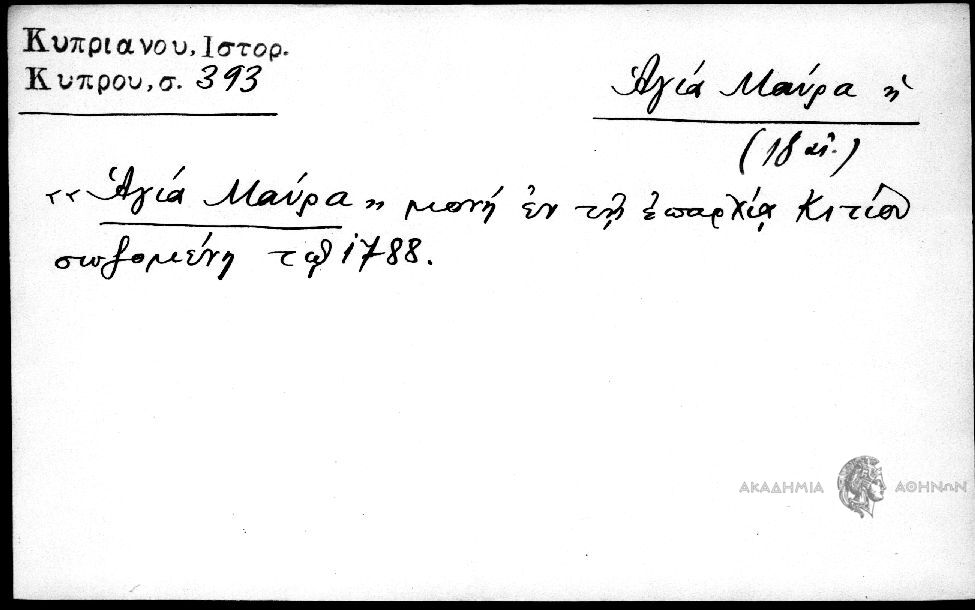 Κυπριανου, Ιστορ.
Κυπρου, σ. 393
Ἁγία Μαύρα ἡ
(18 αἰ.)
«Ἁγία Μαύρα» μονή ἐν τῇ ἐπαρχίᾳ Κιτίου
σωζομένη τῷ 1788.
ΑΚΑΔΗΜΙΑ ΑΘΗΝΩΝ